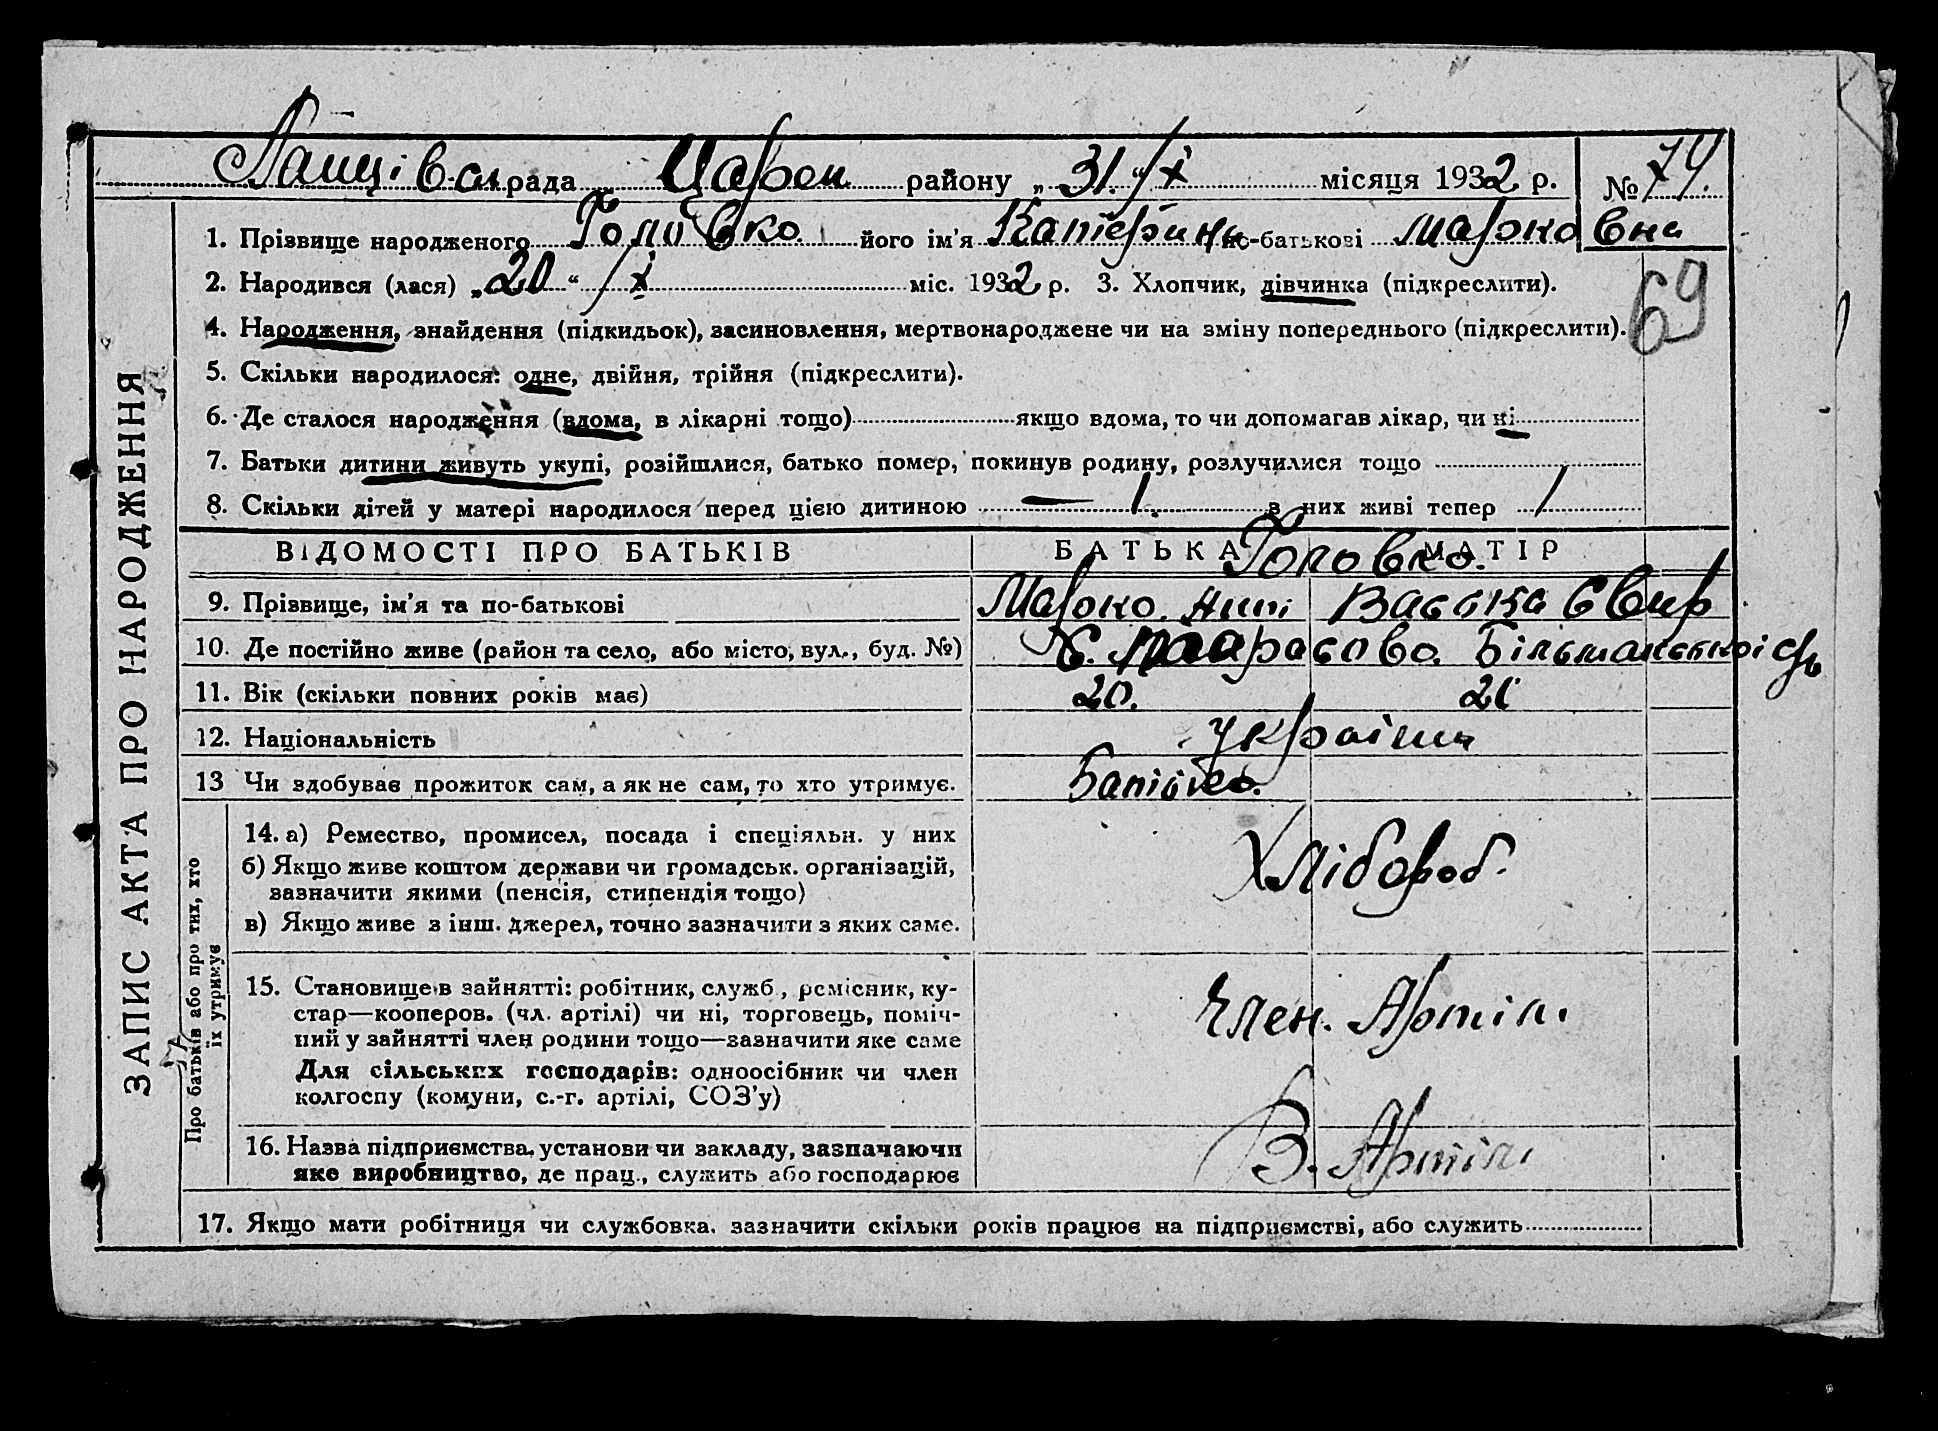 рада Царек району „31.“ /X місяця 1932 р. № 74.
1. Прізвище народженого Головко його ім'я Катерина по-батькові Марковна
2. Народився (лася) „20“ /X міс. 1932 р. 3. Хлопчик, дівчинка (підкреслити).
69
4. Народження, знайдення (підкидьок), засиновлення, мертвонароджене чи на зміну попереднього (підкреслити).
5. Скільки народилося: одне, двійня, трійня (підкреслити).
6. Де сталося народження (вдома, в лікарні тощо) якщо вдома, то чи допомагав лікар, чи ні
7. Батьки дитини живуть укупі, розійшлися, батько помер, покинув родину, розлучилися тощо
8. Скільки дітей у матері народилося перед цією дитиною — 1. з них живі тепер 1
ВІДОМОСТІ ПРО БАТЬКІВ БАТЬКА МАТІР
Головко.
9. Прізвище, ім'я та по-батькові Марко.
10. Де постійно живе (район та село, або місто, вул., буд. №) С. Тарасово.
11. Вік (скільки повних років має) 20. 21
12. Національність україн
13 Чи здобуває прожиток сам, а як не сам, то хто утримує. Батько.
14. а) Ремество, промисел, посада і спеціяльн. у них
б) Якщо живе коштом держави чи громадськ. організацій,
зазначити якими (пенсія, стипендія тощо)
Хлібороб.
в) Якщо живе з інш. джерел, точно зазначити з яких саме.
15. Становище в зайнятті: робітник, служб., ремісник, ку-
стар—кооперов. (чл. артілі) чи ні, торговець, поміч-
ний у зайнятті член родини тощо—зазначити яке саме
Член. Артіли
Для сільських господарів: одноосібник чи член
колгоспу (комуни, с.-г. артілі, СОЗ'у)
16. Назва підприємства, установи чи закладу, зазначаючи
яке виробництво, де прац., служить або господарює
В. Артіли
17. Якщо мати робітниця чи службовка. зазначити скільки років працює на підприємстві, або служить
ЗАПИС АКТА ПРО НАРОДЖЕННЯ
Про батьків або про тих, хто
їх утримує